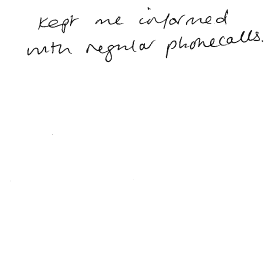 Kept me informed
with regular phonecalls.